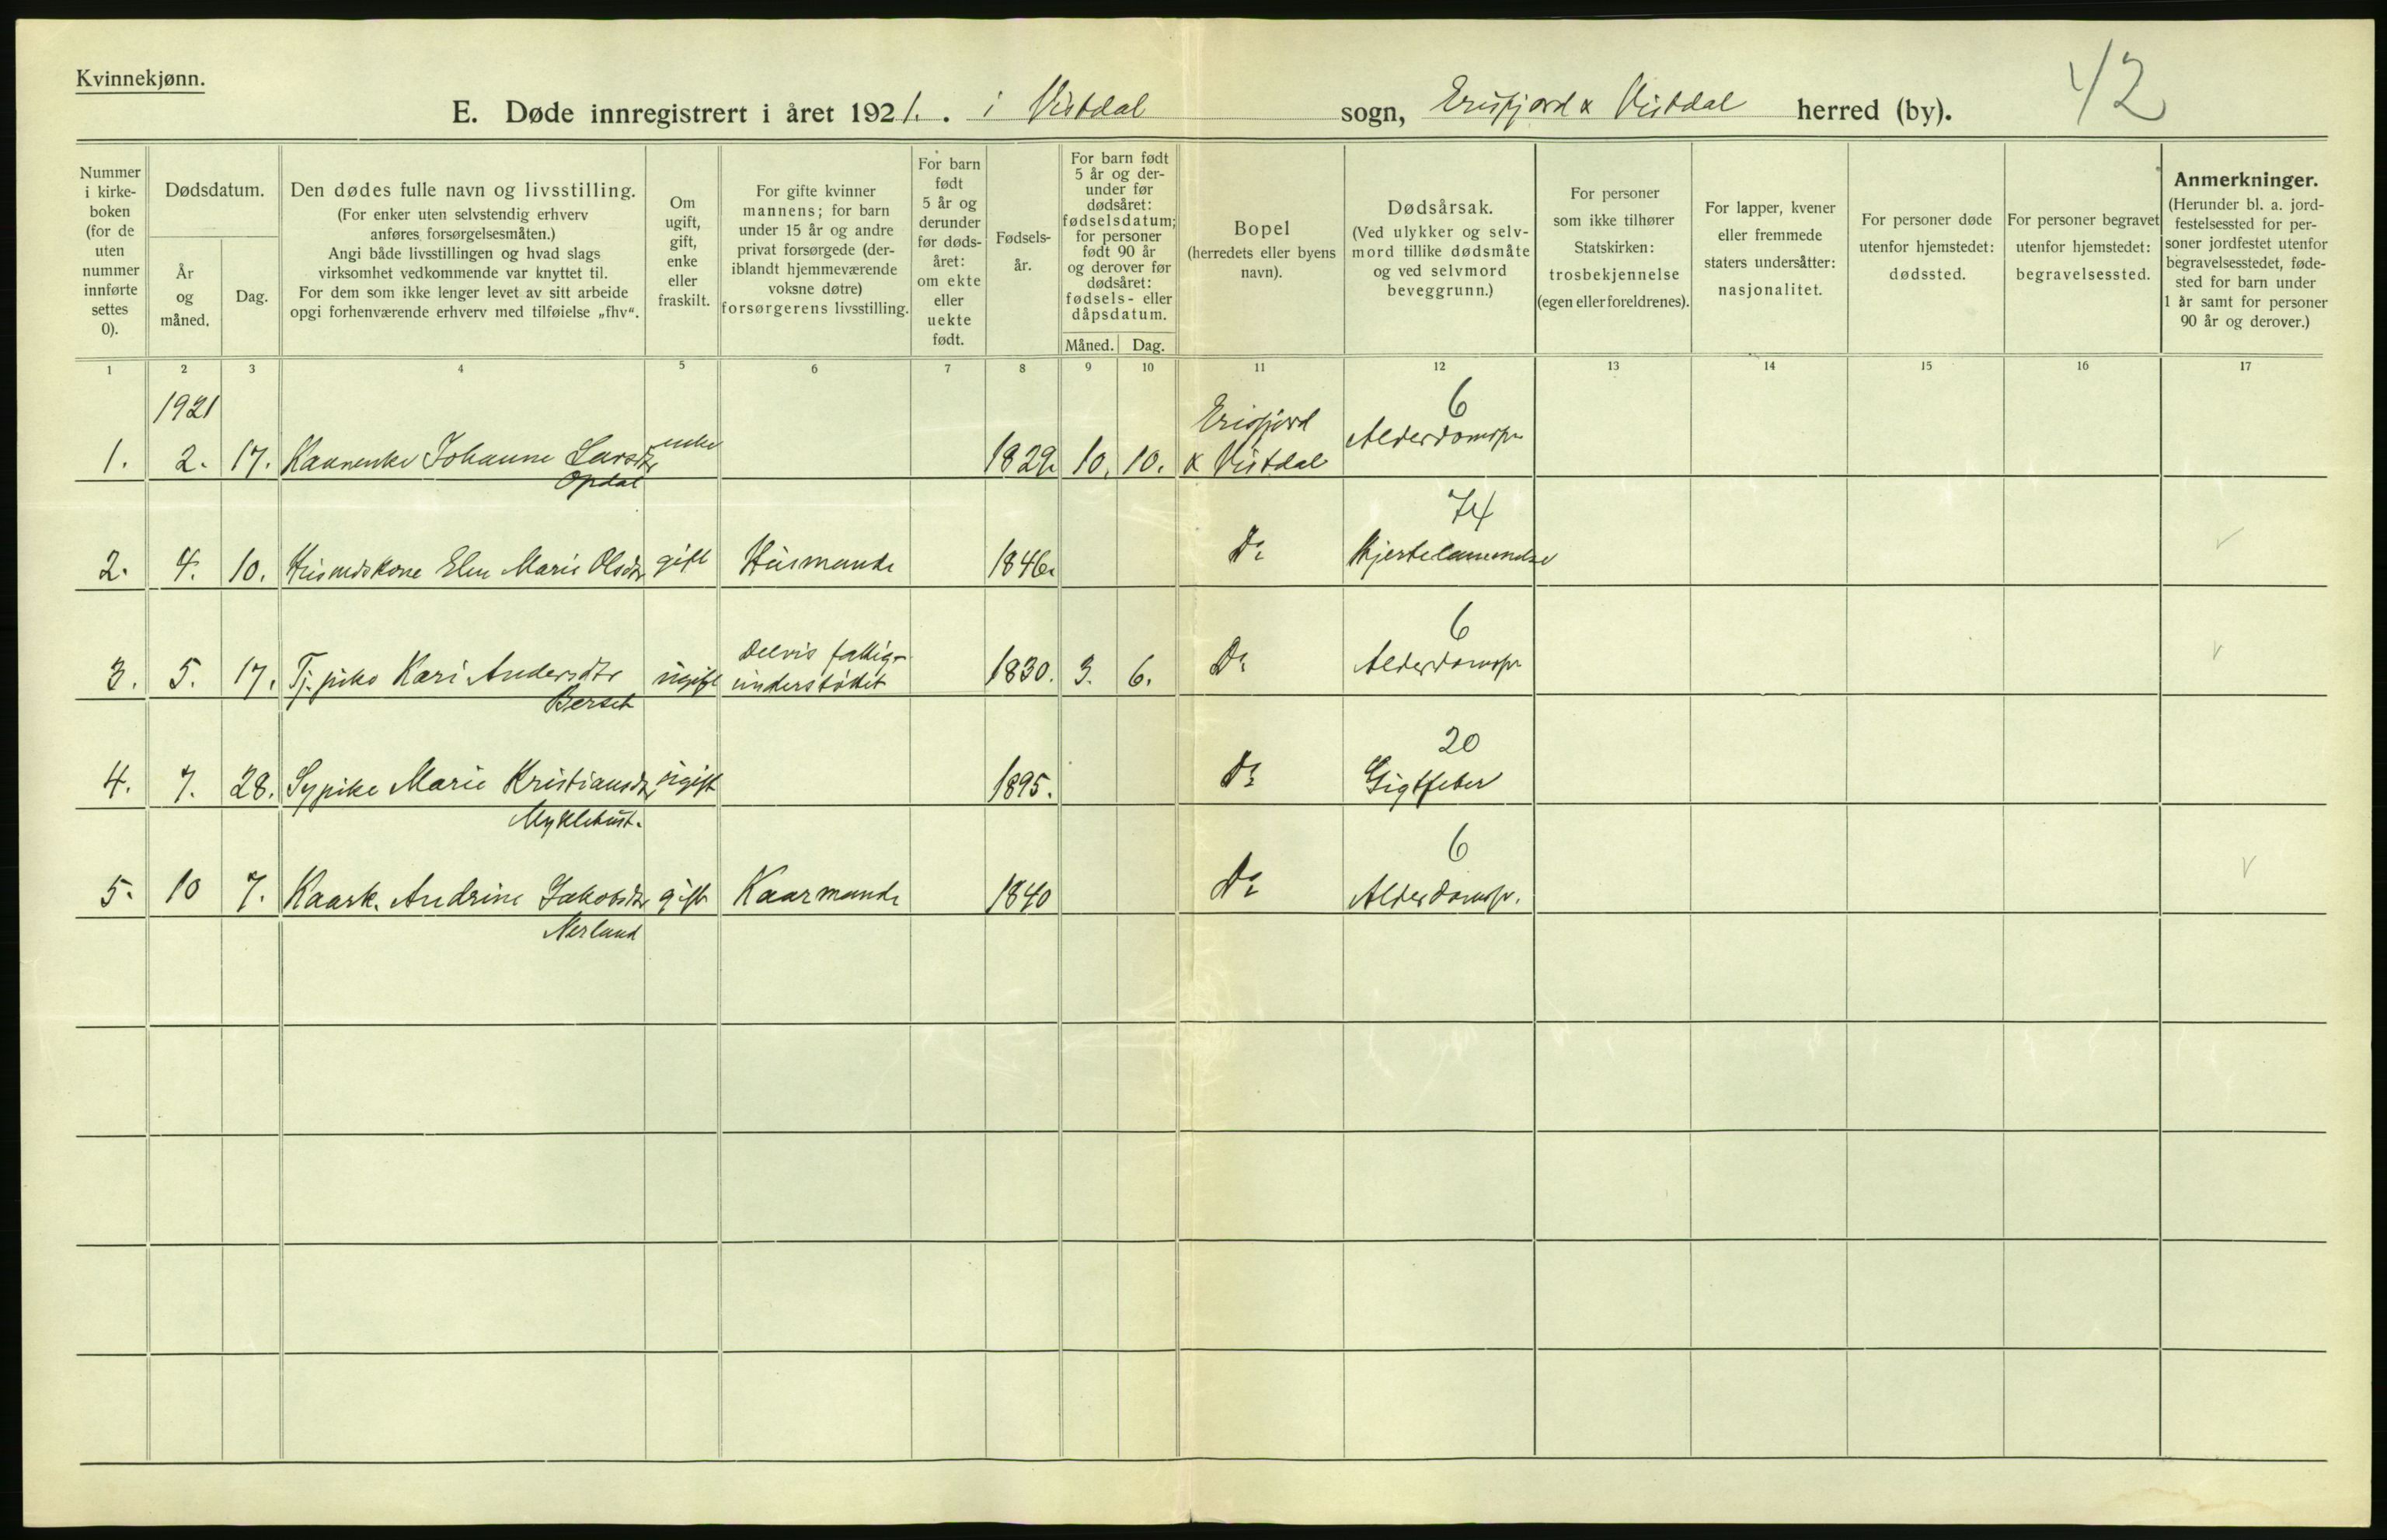 Kvinnekjønn.
42
E. Døde innregistrert i året 1921. i Vistdal sogn, Erisfjord & Vistdal herred (by).
Nummer i kirke-boken (for de uten nummer innførte settes 0).
Dødsdatum.
År og måned.
Dag.
Den dødes fulle navn og livsstilling.
(For enker uten selvstendig erhverv
anføres forsørgelsesmåten.)
Angi både livsstillingen og hvad slags
virksomhet vedkommende var knyttet til.
For dem som ikke lenger levet av sitt arbeide
opgi forhenværende erhverv med tilføielse „fhv“.
Om ugift, gift, enke eller fraskilt.
For gifte kvinner
mannens; for barn
under 15 år og andre
privat forsørgede (der-
iblandt hjemmeværende
voksne døtre)
forsørgerens livsstilling.
For barn født 5 år og derunder før døds-året: om ekte eller uekte født.
Fødsels-år.
For barn født
5 år og der-
under før
dødsåret:
fødselsdatum;
for personer
født 90 år
og derover før
dødsåret:
fødsels- eller
dåpsdatum.
Måned. Dag.
Bopel
(herredets eller byens
navn).
Dødsårsak.
(Ved ulykker og selv-
mord tillike dødsmåte
og ved selvmord
beveggrunn.)
For personer
som ikke tilhører
Statskirken:
trosbekjennelse
(egen eller foreldrenes).
For lapper, kvener
eller fremmede
staters undersåtter:
nasjonalitet.
For personer døde
utenfor hjemstedet:
dødssted.
For personer begravet
utenfor hjemstedet:
begravelsessted.
Anmerkninger.
(Herunder bl. a. jord-
festelsessted for per-
soner jordfestet utenfor
begravelsesstedet, føde-
sted for barn under
1 år samt for personer
90 år og derover.)
1 2 3 4 5 6 7 8 9 10 11 12 13 14 15 16 17
1921 Erisfjord 6
1. 2. 17. Kaarenke Johanne Larsdtr enke 1829. 10. 10. & Vistdal Alderdomssv
Opdal
74
2. 4. 10. Husmdskone Elen Marie Olsdtr gift Husmand 1846. Do Hjertelammelse
6
3. 5. 17. Tj. pike Kari Andersdtr ugift Delvis fattig- understøttet 1830. 3. 6. Do Alderdomssv
Berset
20
4. 7. 28. Sypike Marie Kristiansdtr ugift 1895. Do Gigtfeber
Myklebust.
6
5. 10 7. Kaark. Andrine Jakobsdtr gift Kaarmand 1840 Do Alderdomssv.
Nerland